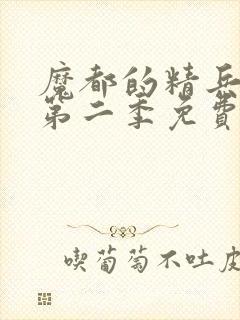 魔都的精兵
第二季免費
喫葡萄不吐皮